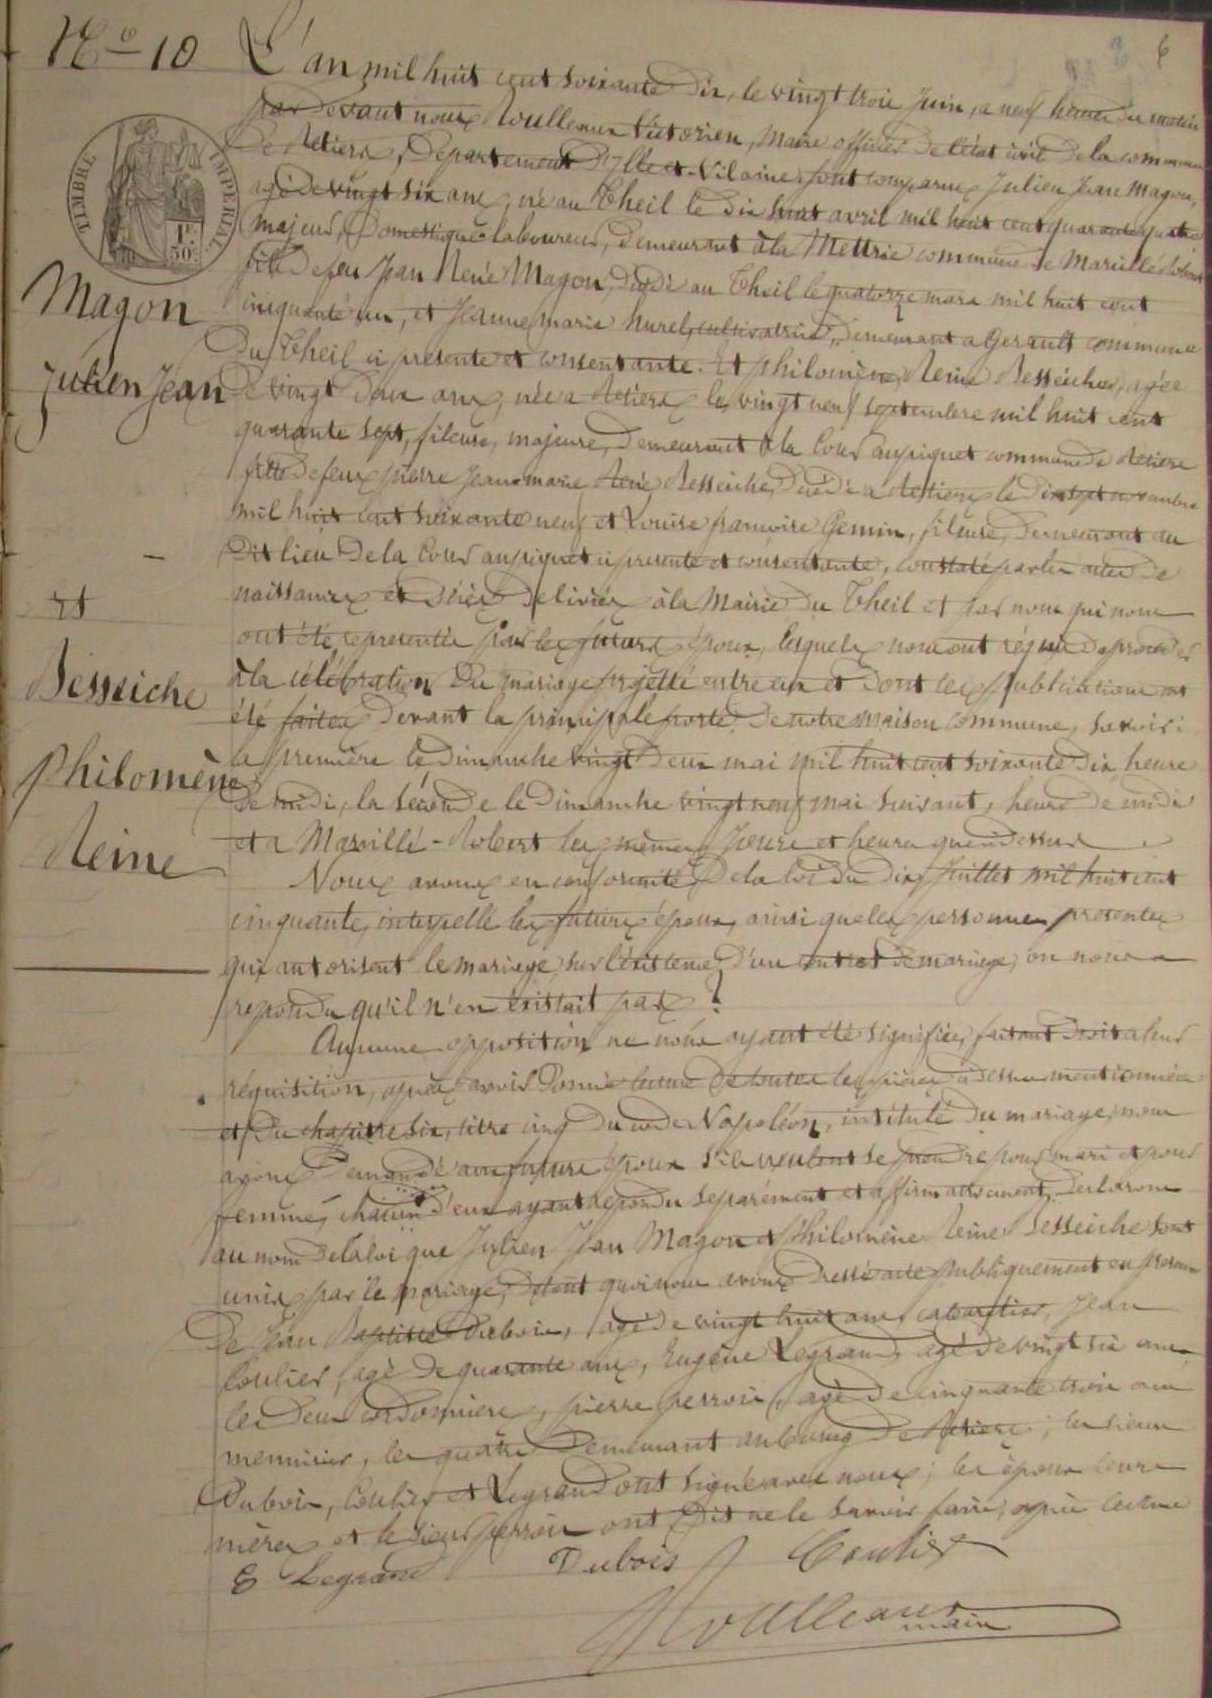 N° 10
6
TIMBRE IMPERIAL
1F 50c
Magon
Julien Jean
et
Besseiche
philomène
Reine
L'an mil huit cent soixante dix, le vingt trois Juin, a neuf heures du matin
par devant nous Roulleaux Victorien, Maire officier de l'état civil de la commune
De Retiers, Département D'Ille et Vilaine, sont comparus Julien Jean Magon,
agé de vingt six ans, né au Theil le dix avril mil huit cent quarante quatre
majeur, Domestique laboureur, demeurant à la Mettrie commune de Marcillé Robert
fils de feu Jean René Magon, décédé au Theil le quatorze mars mil huit cent
cinquante un, et Jeanne marie hurel, cultivatrice, demeurant a Gerault commune
Du Theil ci présente et consentante. Et philomène Reine Besseiche, agée
De vingt Deux ans, née a Retiers le vingt neuf septembre mil huit cent
quarante sept, fileuse, majeure, demeurant à la Cour aupiquet commune de Retiers
fille de feu pierre Jean marie René Besseiche, décédé a Retiers le dix sept novembre
mil huit cent soixante neuf et Louise françoise Gemin, fileuse, demeurant au
Dit lieu De la Cour aupiquet ci présente et consentante, constaté par les actes de
naissances et décès délivrés à la Mairie du Theil et par nous qui nous
ont été représentés par les futurs époux, lesquels nous ont requis de procéder
à la célébration Du mariage projetté entre eux et dont les publications ont
été faites devant la principale porte de notre maison commune, savoir :
la première le Dimanche vingt deux mai mil huit cent soixante dix heure
de midi, la seconde le Dimanche vingt neuf mai suivant, heure de midi
et a Marcillé-Robert les mêmes Jours et heures que dessus
Nous avons en conformité De la loi du dix Juillet mil huit cent
cinquante, interpellé les futurs époux, ainsi que les personnes présentes
qui autorisent le mariage, sur l'existence d'un contrat de mariage, on nous a
répondu qu'il n'en existait pas
Aucune opposition ne nous ayant été signifiée, faisant droit a leur
réquisition, après avoir Donné lecture de toutes les pièces ci dessus mentionnées
et Du chapitre six, titre cinq du code Napoléon, intitulé Du mariage, nous
avons Demandé aux futurs époux s'ils veulent se prendre pour mari et pour
femme, chacun d'eux ayant répondu séparément et affirmativement, déclarons
au nom de la loi que Julien Jean Magon et Philomène Reine Besseiche sont
unis par le mariage, De tout quoi nous avons dressé acte publiquement en présence
De Jean Baptiste Dubois, agé de vingt huit ans, cabaretier, Jean
Coulier, agé de quarante ans, Eugène Legrand, agé de vingt six ans,
les deux cordonniers, pierre perroin, agé de cinquante trois ans
menuisier, les quatre Demeurant au bourg De Retiers ; les sieurs
Dubois, Coulier et Legrand ont signé avec nous ; les époux leurs
mères et le sieur perroin ont dit ne le savoir faire, après lecture
E Legrand
Dubois
Coulier
Roulleaux
maire